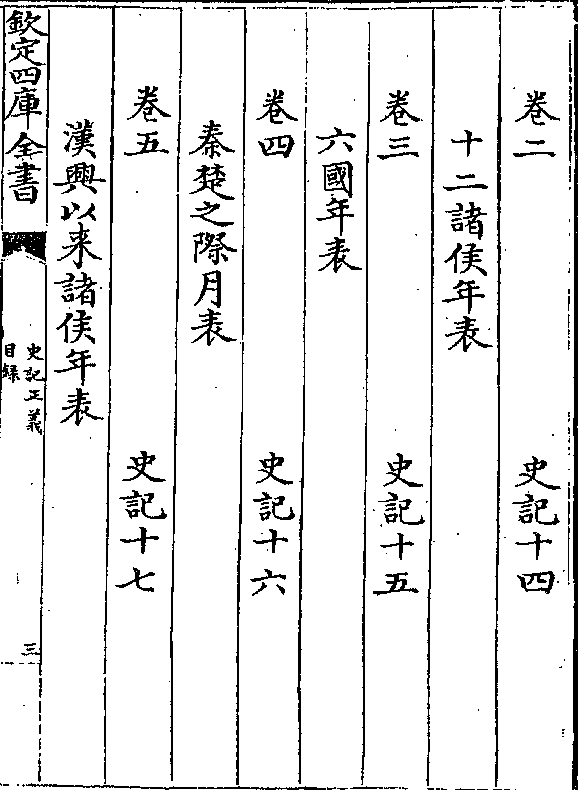 卷二　史記十四
十二諸侯年表
卷三　史記十五
六國年表
卷四　史記十六
秦楚之際月表
卷五　史記十七
漢興以来諸侯年表
欽定四庫全書
史記正義
目録
三